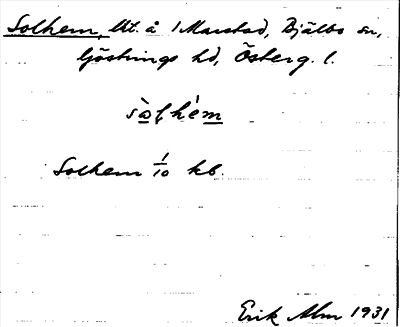 Solhem, Ut. å 1 Marstad, Bjälbo sn,
Göstrings hd, Österg. l.
sòl̨hèm
Solhem 1/10 kb.
Erik Alm 1931